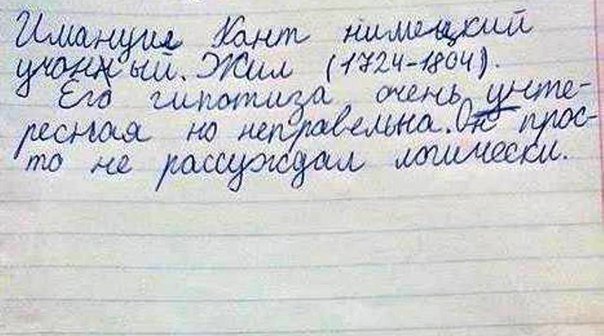 Имануил Кант нимецкий
учонный. Жил (1724-1804).
Его гипотиза очень унте-
ресная но неправельна. Он прос-
то не рассуждал логически.